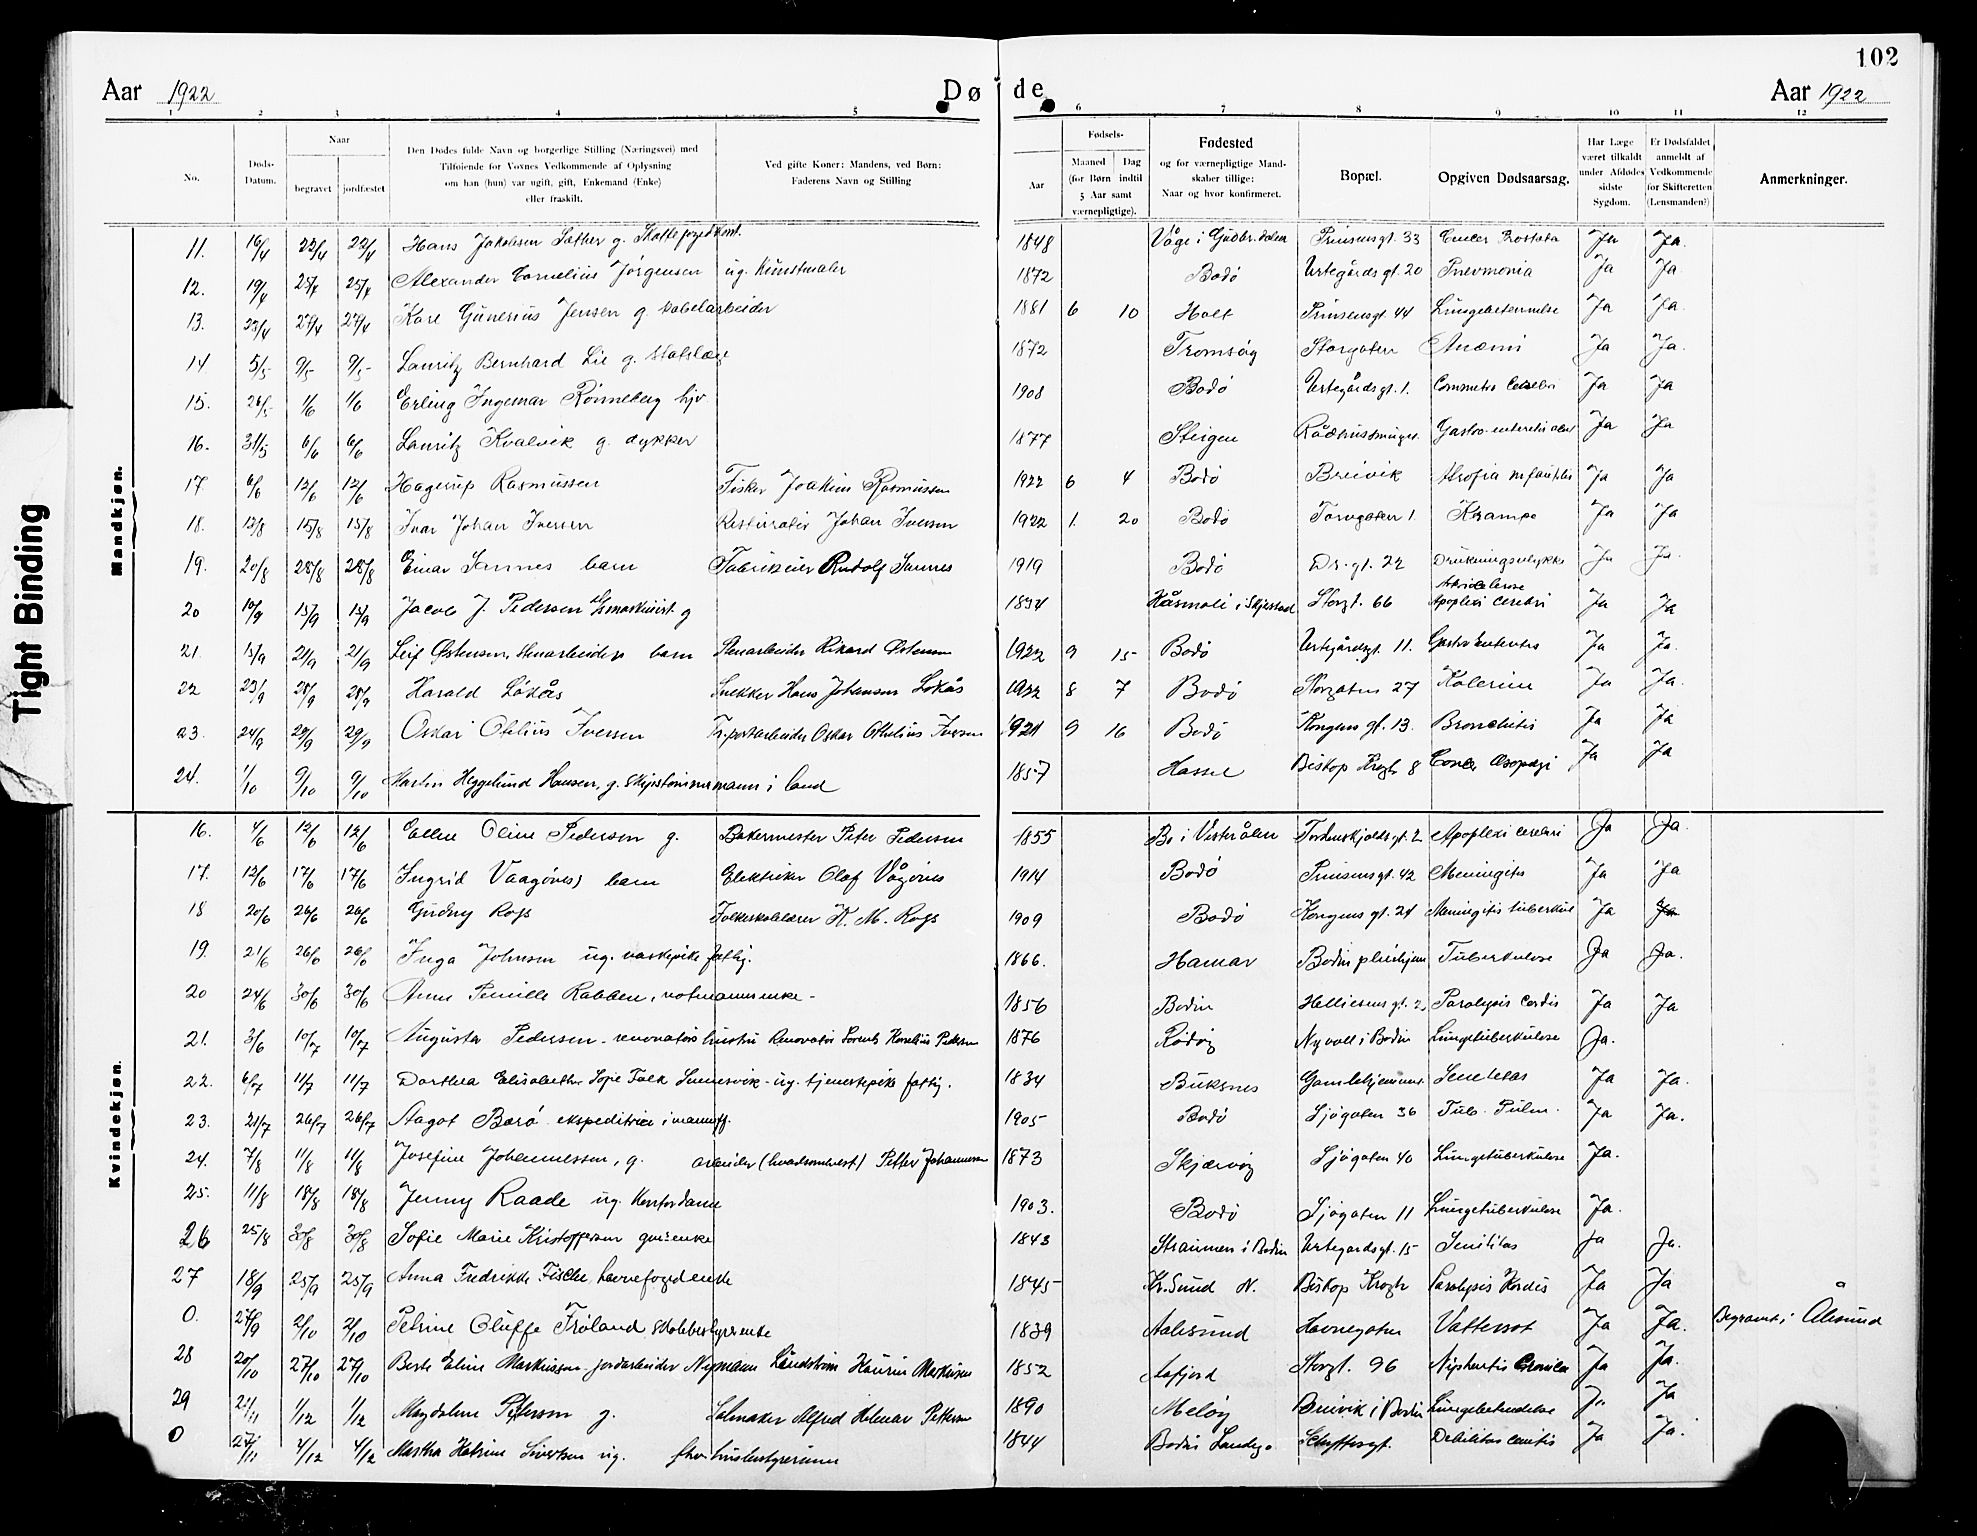 102
Aar 1922 Døde Aar 1922
1 2 3 4 5 6 7 8 9 10 11 12
No. Døds-Datum. Naar begravet jordfæstet Den Dødes fulde Navn og borgerlige Stilling (Næringsvei) med Tilføiende for Voxnes Vedkommende af Oplysning om han (hun) var ugift, gift, Enkemand (Enke) eller fraskilt. Ved gifte Koner: Mandens, ved Børn: Faderens Navn og Stilling Fødsels- Aar Maaned Dag (for Børn indtil 5 Aar samt værnepligtige). Fødested og for værnepligtige Mandskaber tillige: Naar og hvor konfirmeret. Bopæl. Opgiven Dødsaarsag. Har Læge været tilkaldt under Afdødes sidste Sygdom. Er Dødsfaldet anmeldt af Vedkommende for Skifteretten (Lensmanden?) Anmerkninger.
Tight Binding
Mandkjøn.
11. 16/4 22/4 22/4 Hans Jakobsen Sæther g. 1848 Våge i Gudbr.dalen Prinsensgt. 33 Cancer Prostata Ja Ja.
12. 19/4 25/4 25/4 Alexander Cornelius Jørgensen ug. Kunstmaler 1872 Bodø Urtegårdsgt. 20 Pnevmonia Ja Ja
13. 23/4 27/4 27/4 Kare Gunerius Jensen g. 1881 6 10 Holt Prinsensgt. 44 Lungebetennelse Ja Ja.
14 5/5 9/5 9/5 Lauritz Bernhard Lie g. 1872 Tromsøy Storgaten Anæmi Ja Ja.
15. 26/5 1/6 1/6 Erling Ingemar Rønneberg 1908 Bodø Urtegårdsgt. 1. Ja Ja
16. 31/5 6/6 6/6 Lauritz Kvalvik g. dykker 1877 Steigen Ja Ja
17. 6/6 12/6 12/6 Hagerup Rasmussen Fisker Joakim Rasmussen 1922 6 4 Bodø Breivik Atrofia infantilis Ja Ja
18. 12/8 15/8 15/8 Ivar Johan Iversen Johan Iversen 1922 1. 20 Bodø Torvgaten 1. Krampe Ja Ja
19. 20/8 28/8 28/8 Einar Sannes barn Fabrikeier Rudolf Sannes 1919 Bodø Dr.gt. 22 Drukningsulykke Ja Ja.
20 10/9 15/9 15/9 Jacob J. Pedersen g 1834 Håsmoli i Skjerstad Storgt. 66 Apoplexi cerebri Ja Ja
21. 15/9 21/9 21/9 Leif Østensen, barn Stenarbeider Rikard Østensen 1922 9 15 Bodø Urtegårdsgt. 11. Gastro Enterites Ja Ja.
22 23/9 28/9 28/9 Harald Løkås Snekker Hans Johansen Løkås 1922 8 7 Bodø Storgaten 27 Kolerine Ja Ja.
23. 24/9 29/9 29/9 Oskar Otelius Iversen Oskar Othelius Iversen 1921 9 16 Bodø Kongens gt. 13. Bronchitis Ja Ja
24. 1/10 9/10 9/10 Martin Heggelund Hansen, g. skipstømmermann i land 1857 Hassel Biskop Kroghs 8 Cancer Ja Ja
Kvindekjøn.
16. 4/6 12/6 12/6 Oline Pedersen g. Bakermester Peter Pedersen 1855 Bø i Vesterålen Tordenskjoldsgt. 2 Apoplexi cerebri Ja Ja.
17. 12/6 17/6 17/6 Ingrid Vaagønes barn Elektriker Olaf Vågønes 1914 Bodø Prinsensgt. 42 Meningitis Ja Ja
18 20/6 26/6 26/6 Gudny Rogs K. M. Rogs 1909 Bodø Kongensgt. 24 Meningitis tuberkul Ja Ja
19. 21/6 26/6 26/6 Inga Johnsen ug. vaskepike fattig. 1866. Hamar Bodin pleiehjem Tuberkulose Ja Ja.
20 24/6 30/6 30/6 Anne Pernille Rabben, 1856 Bodin Helliesensgt. 2 Paralysis Cordis Ja Ja
21. 3/6 10/7 10/7 Augusta Pedersen - renovatørs hustru Renovatør Kornelius Pedersen 1876 Rødøy Nyvoll i Bodin Lungetuberkulose Ja.
22. 6/7 11/7 11/7 Dorthea Elisabeth Sofie Falk - ug. tjenestepike fattig. 1834 Buksnes Gamlehjemmet Senilitas Ja Ja.
23. 21/7 26/7 26/7 Aagot Barø ekspeditrice 1905 Bodø Sjøgaten 36 Tub. Pulm. Ja Ja.
24. 7/8 11/8 11/8 Josefine Johannessen, g. arbeider (hvadsomhelst) Petter Johannesen 1873 Skjærvøy Sjøgaten 40 Lungetuberkulose Ja.
25. 11/8 18/8 18/8 Jenny Raade ug. Kontordame 1903. Bodø Sjøgaten 11 Lungetuberkulose Ja.
26 25/8 30/8 30/8 Sofie Marie Kristoffersen 1843 Straumen i Bodin Urtegardsgt. 15 Senilitas Ja Ja.
27 18/9 25/9 25/9 Anna Fredrikke Fische, havnefogedenke 1845 Kr.Sund N. Biskop Krogh Paralysis Kordis Ja Ja
0. 27/9 2/10 2/10 Petrine Oluffe Frøland, 1839 Aalesund Havnegaten Vattersot Ja Ja. Begravet i Ålesund
28 20/10 27/10 27/10 Berte Eline Markussen - jordarbeider Haurin Markusen 1852 Aafjord Storgt. 96 Ja Ja.
29 1/12 1/12 Magdalene Petersen g. Salmaker Alfred Hilmar Pettersen 1890 Meløy Breivik i Bodin Ja Ja
0 27/11 4/12 4/12 Martha Katrine Sivertsen ug. fhv. husbestyrerinne 1844 Bodin Landego Schyttesgt. Debilitas Ja Ja.